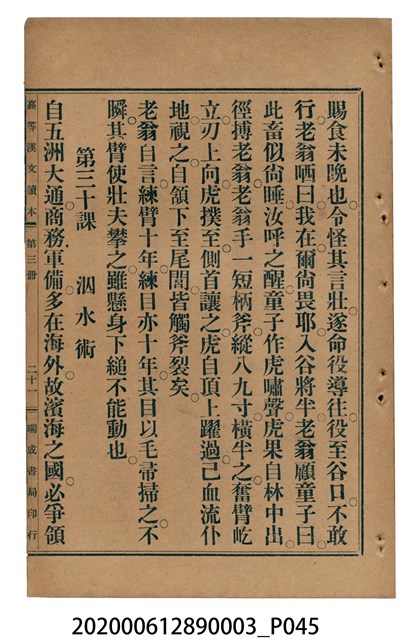 賜食未晚也。令怪其言壯。遂命役導往。役至谷口。不敢
行。老翁哂曰。我在。爾尙畏耶。入谷將半。老翁顧童子曰。
此畜似尙睡。汝呼之醒。童子作虎嘯聲。虎果自林中出。
徑搏老翁。老翁手一短柄斧。縱八九寸。橫半之。奮臂屹
立。刃上向。虎撲至。側首讓之。虎自頂上躍過。已血流仆
地。視之。自頷下至尾閭。皆觸斧裂矣。
老翁自言練臂十年。練目亦十年。其目以毛帚掃之不
瞬。其臂使壯夫攀之。雖懸身下縋不能動也。
第三十課　泅水術
自五洲大通。商務軍備。多在海外。故濱海之國。必爭領
高等漢文讀本　第三冊　二十一　瑞成書局印行
202000612890003_P045